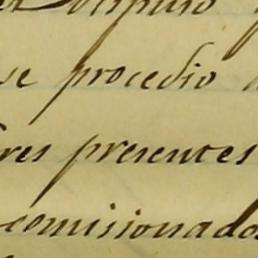 se procedio
res presentes
comisionados